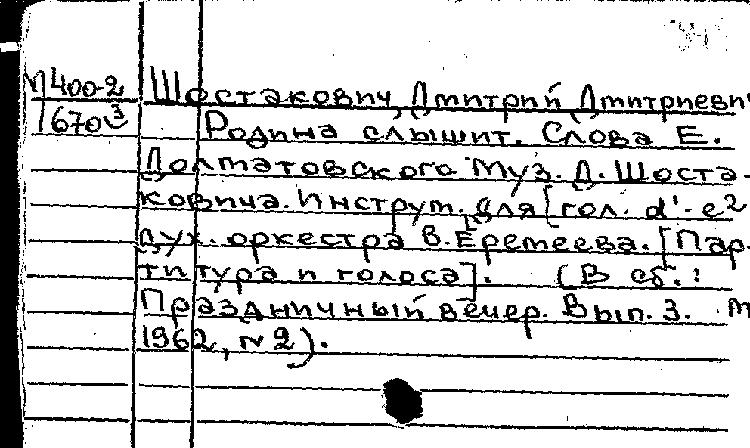 М400-2
1670э
Шостакович, Дмитрий Дмитриевич
Родина слышит. Слова Е.
Долматовского Муз. Д. Шоста-
ковича. Инструм. для [гол. d'-e2
дух. оркестра В. Еремеева. [Пар-
титура и голоса]. (В сб.:
Праздничный вечер. Вып. 3. М
1962, N2).